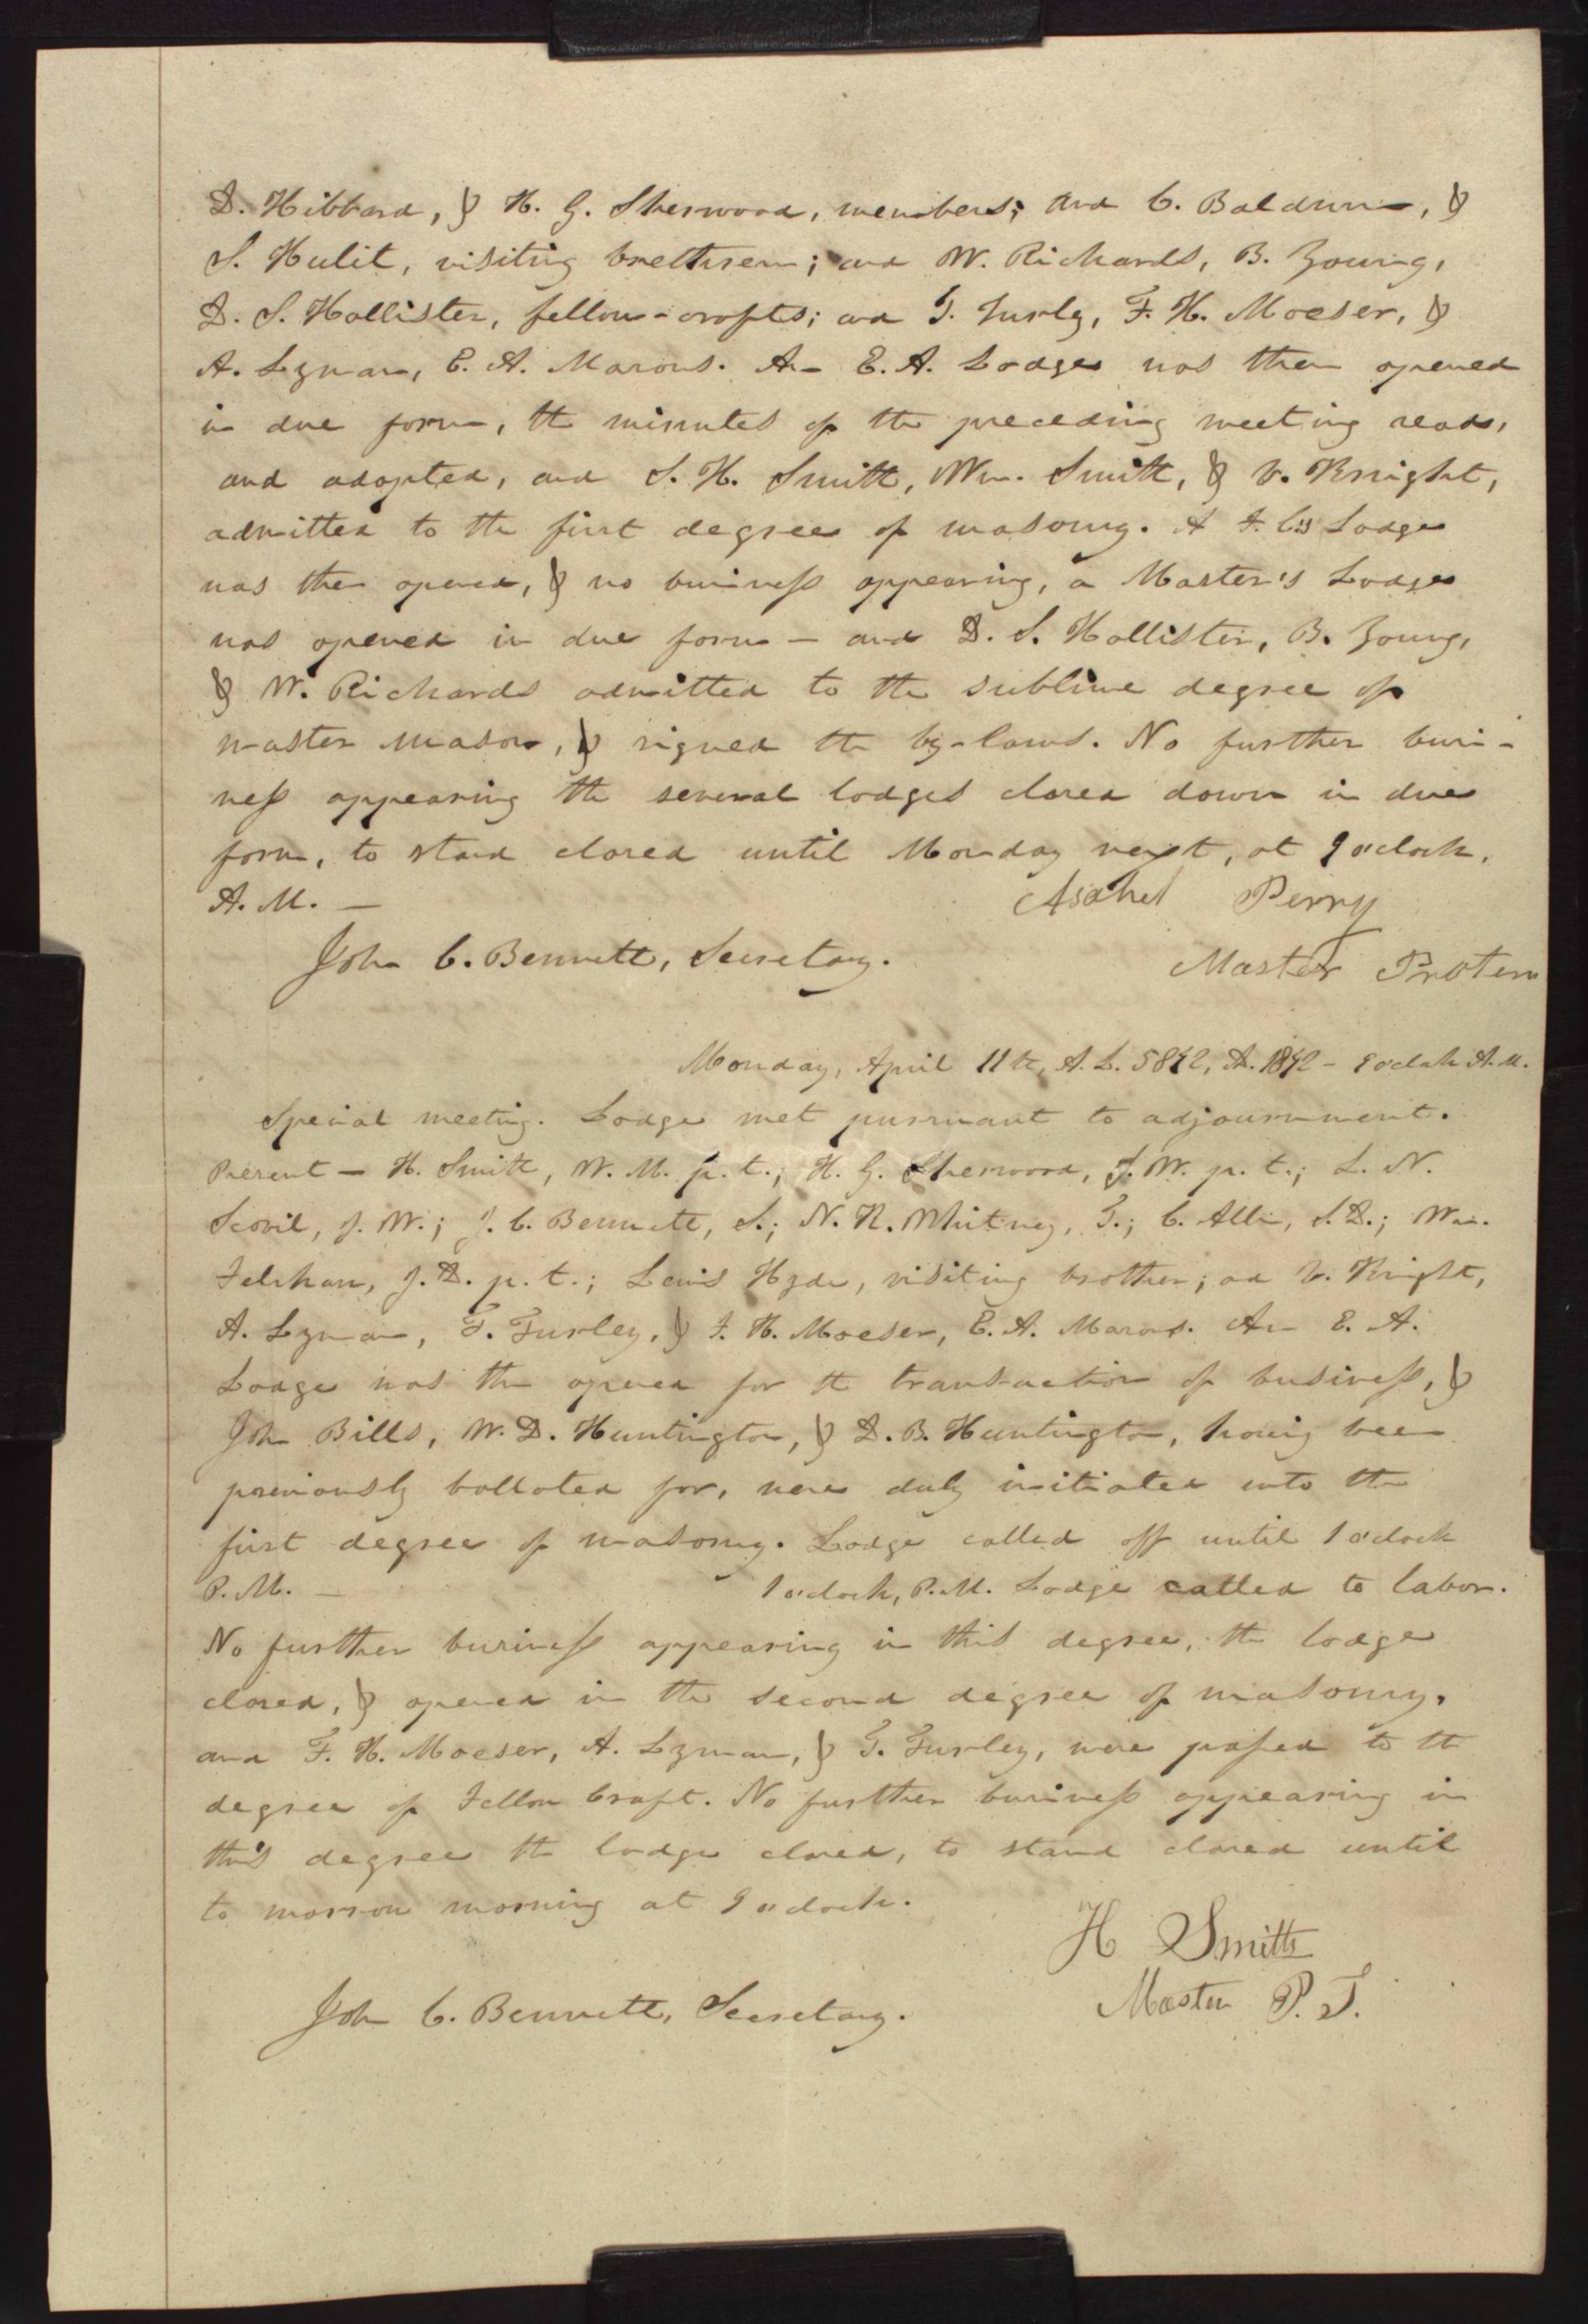 D. Hibbard, & H. G. Sherwood, members; and C. Baldwin, &
S. Hulit, visiting brethren; and W. Richards, B. Young,
D. S. Hollister, fellow-crafts; and T. Turly, F. H. Moeser, &
A. Lyman, E. A. Masons. An E. A. Lodge was then opened
in due form, the minutes of the preceding meeting read,
and adopted, and S. H. Smith, Wm. Smith, & V. Knight,
admitted to the first degree of masonry. A F. C's Lodge
was then opened, & no business appearing, a Master's Lodge
was opened in due form — and D. S. Hollister, B. Young,
& W. Richards admitted to the sublime degree of
master mason, & signed the by-laws. No further busi-
ness appearing the several lodges closed down in due
form, to stand closed until Monday next, at 9 o'clock,
A. M. — Asahel Perry
John C. Bennett, Secretary. Master Protem
Monday, April 11th, A. L. 5842, A. 1842 - 9 o'clock A. M.
Special meeting. Lodge met pursuant to adjournment.
Present — H. Smith, W. M. p. t.; H. G. Sherwood, S. W. p. t.; L. N.
Scovil, J. W.; J. C. Bennett, S.; N. K. Whitney, T.; C. Allen, S. D.; Wm.
Felshaw, J. D. p. t.; Lewis Hyde, visiting brother; and V. Knight,
A. Lyman, T. Turley, & F. H. Moeser, E. A. Masons. An E. A.
Lodge was then opened for the transaction of business, &
John Bills, W. D. Huntington, & D. B. Huntington, having been
previously balloted for, were duly initiated into the
first degree of masonry. Lodge called off until 1 o'clock
P. M. — 1 o'clock, P. M. Lodge called to labor.
No further business appearing in this degree, the lodge
closed, & opened in the second degree of masonry,
and F. H. Moeser, A. Lyman, & T. Turley, were passed to the
degree of Fellow Craft. No further business appearing in
this degree the lodge closed, to stand closed until
to morrow morning at 9 o'clock.
H Smith
John C. Bennett, Secretary. Master P. T.